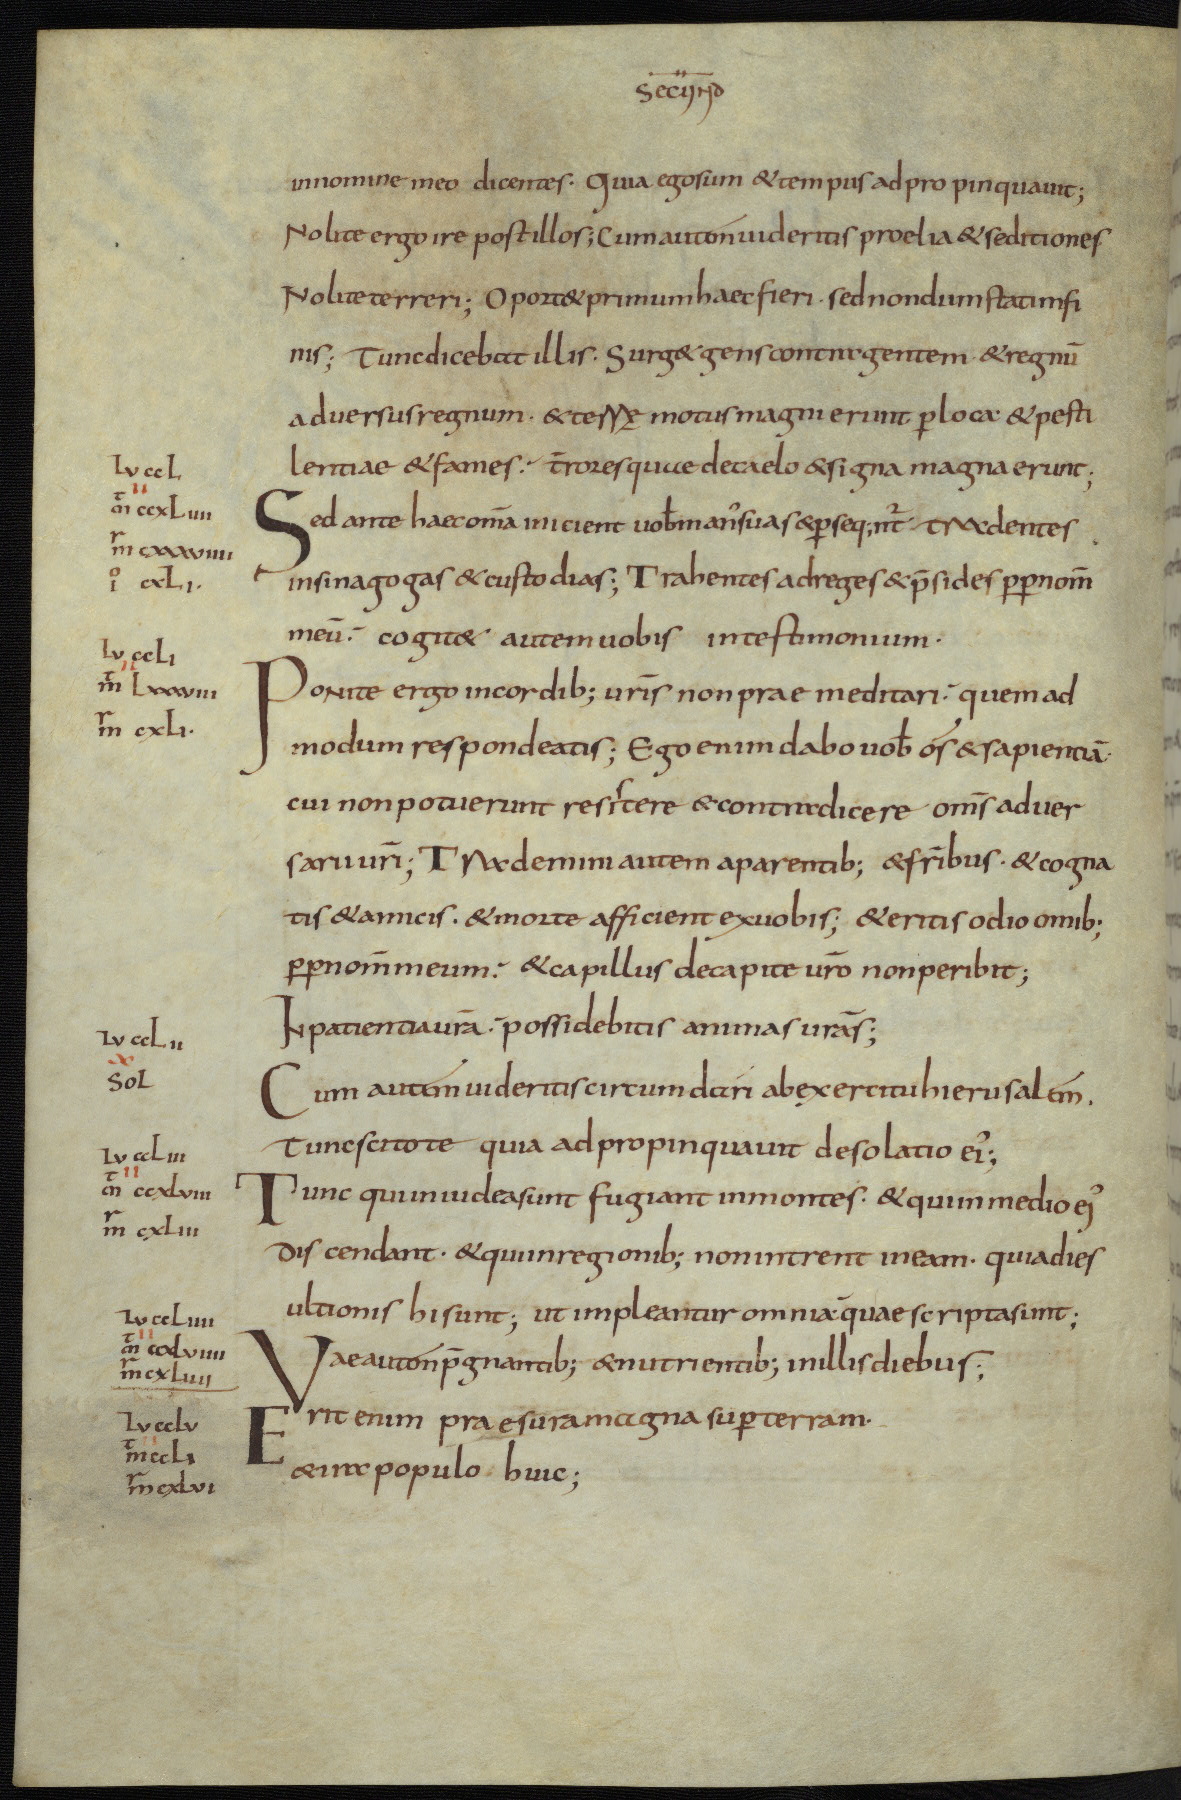 Secund
innomine meo dicentes. Quia ego sum & tempus adpropinquavit;
Nolite ergo ire post illos; Cum autē videritis proelia & seditiones
Nolite terreri; Oport& primum haec fieri. sed non dum statim fi
nis; Tunc dicebat illis. Surg& gens contra gentem & regnū
adversus regnum. & terrę motus magni erunt p̄ loca & pesti
lentiae & fames. t̄rores que de caelo & signa magna erunt;
Lv ccL
m̄ ccxLiiii
mr cxxxviiii
io cxLi.
Sed ante haec om̄a inicient vob̄ man' suas & p̄seq;nt̄ tradentes
in sinagogas & custodias; Trahentes ad reges & p̄sides pp nom̄
meū. cogit& autem vobis in testimonium.
Lv ccLi
mt Lxxxviii
mr cxLi.
Ponite ergo in cordib; vr̄is non praemeditari. quem ad
modum respondeatis; Ego enim dabo vob̄ os & sapientiā.
cui non potuerunt resistere & contradicere om̄s adver
sarii vr̄i; Trademini autem a parentib; & fr̄ibus. & cogna
tis & amicis. & morte afficient ex vobis; & eritis odio omib;
pp nom̄ meum. & capillus de capite vr̄o non peribit;
In patientia vr̄a. possidebitis animas vr̄as;
Lv ccLii
x
SoL
Cum autē videritis circumdari ab exercitu hierusalem.
Tunc scitote quia adpropinquavit desolatio ei';
Lv ccLiii
mt ccxLviii
mr cxLiii
Tunc qui in iudea sunt fugiant in montes. & qui in medio ei'
discendant. & qui in regionib; non intrent in eam. quia dies
ultionis hi sunt; ut impleantur omnia quae scripta sunt;
Lv ccLiiii
mt ccxLviiii
mr cxLiiii
Vae autē p̄gnantib; & nutrientib; in illis diebus;
Lv ccLv
mt ccLi
mr cxLvi
Erit enim praesura magna sup terram.
& ira populo huic;